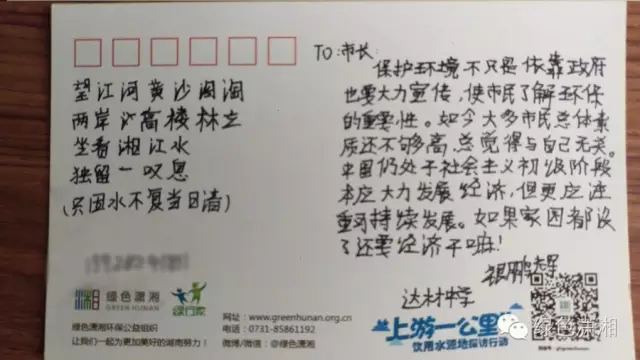 望江河黄沙阔淘
两岸亦高楼林立
坐看湘江水
独留一叹息
(只因水不复当日清)
TO:市长:
保护环境不只是依靠政府
也要大力宣传,使市民了解环保
的重要性。如今大多市民总体素
质还不够高,总觉得与自己无关。
中国仍处于社会主义初级阶段
本应大力发展经济,但更应注
重可持续发展。如果家园都没
了还要经济干嘛!
达材中学
绿色潇湘
GREEN HUNAN
绿行家
绿色潇湘环保公益组织
让我们一起为更加美好的湖南努力!
网址:www.greenhunan.org.cn
电话:0731-85861192
微博/微信:@绿色潇湘
上游一公里
饮用水源地探访行动
绿色潇湘